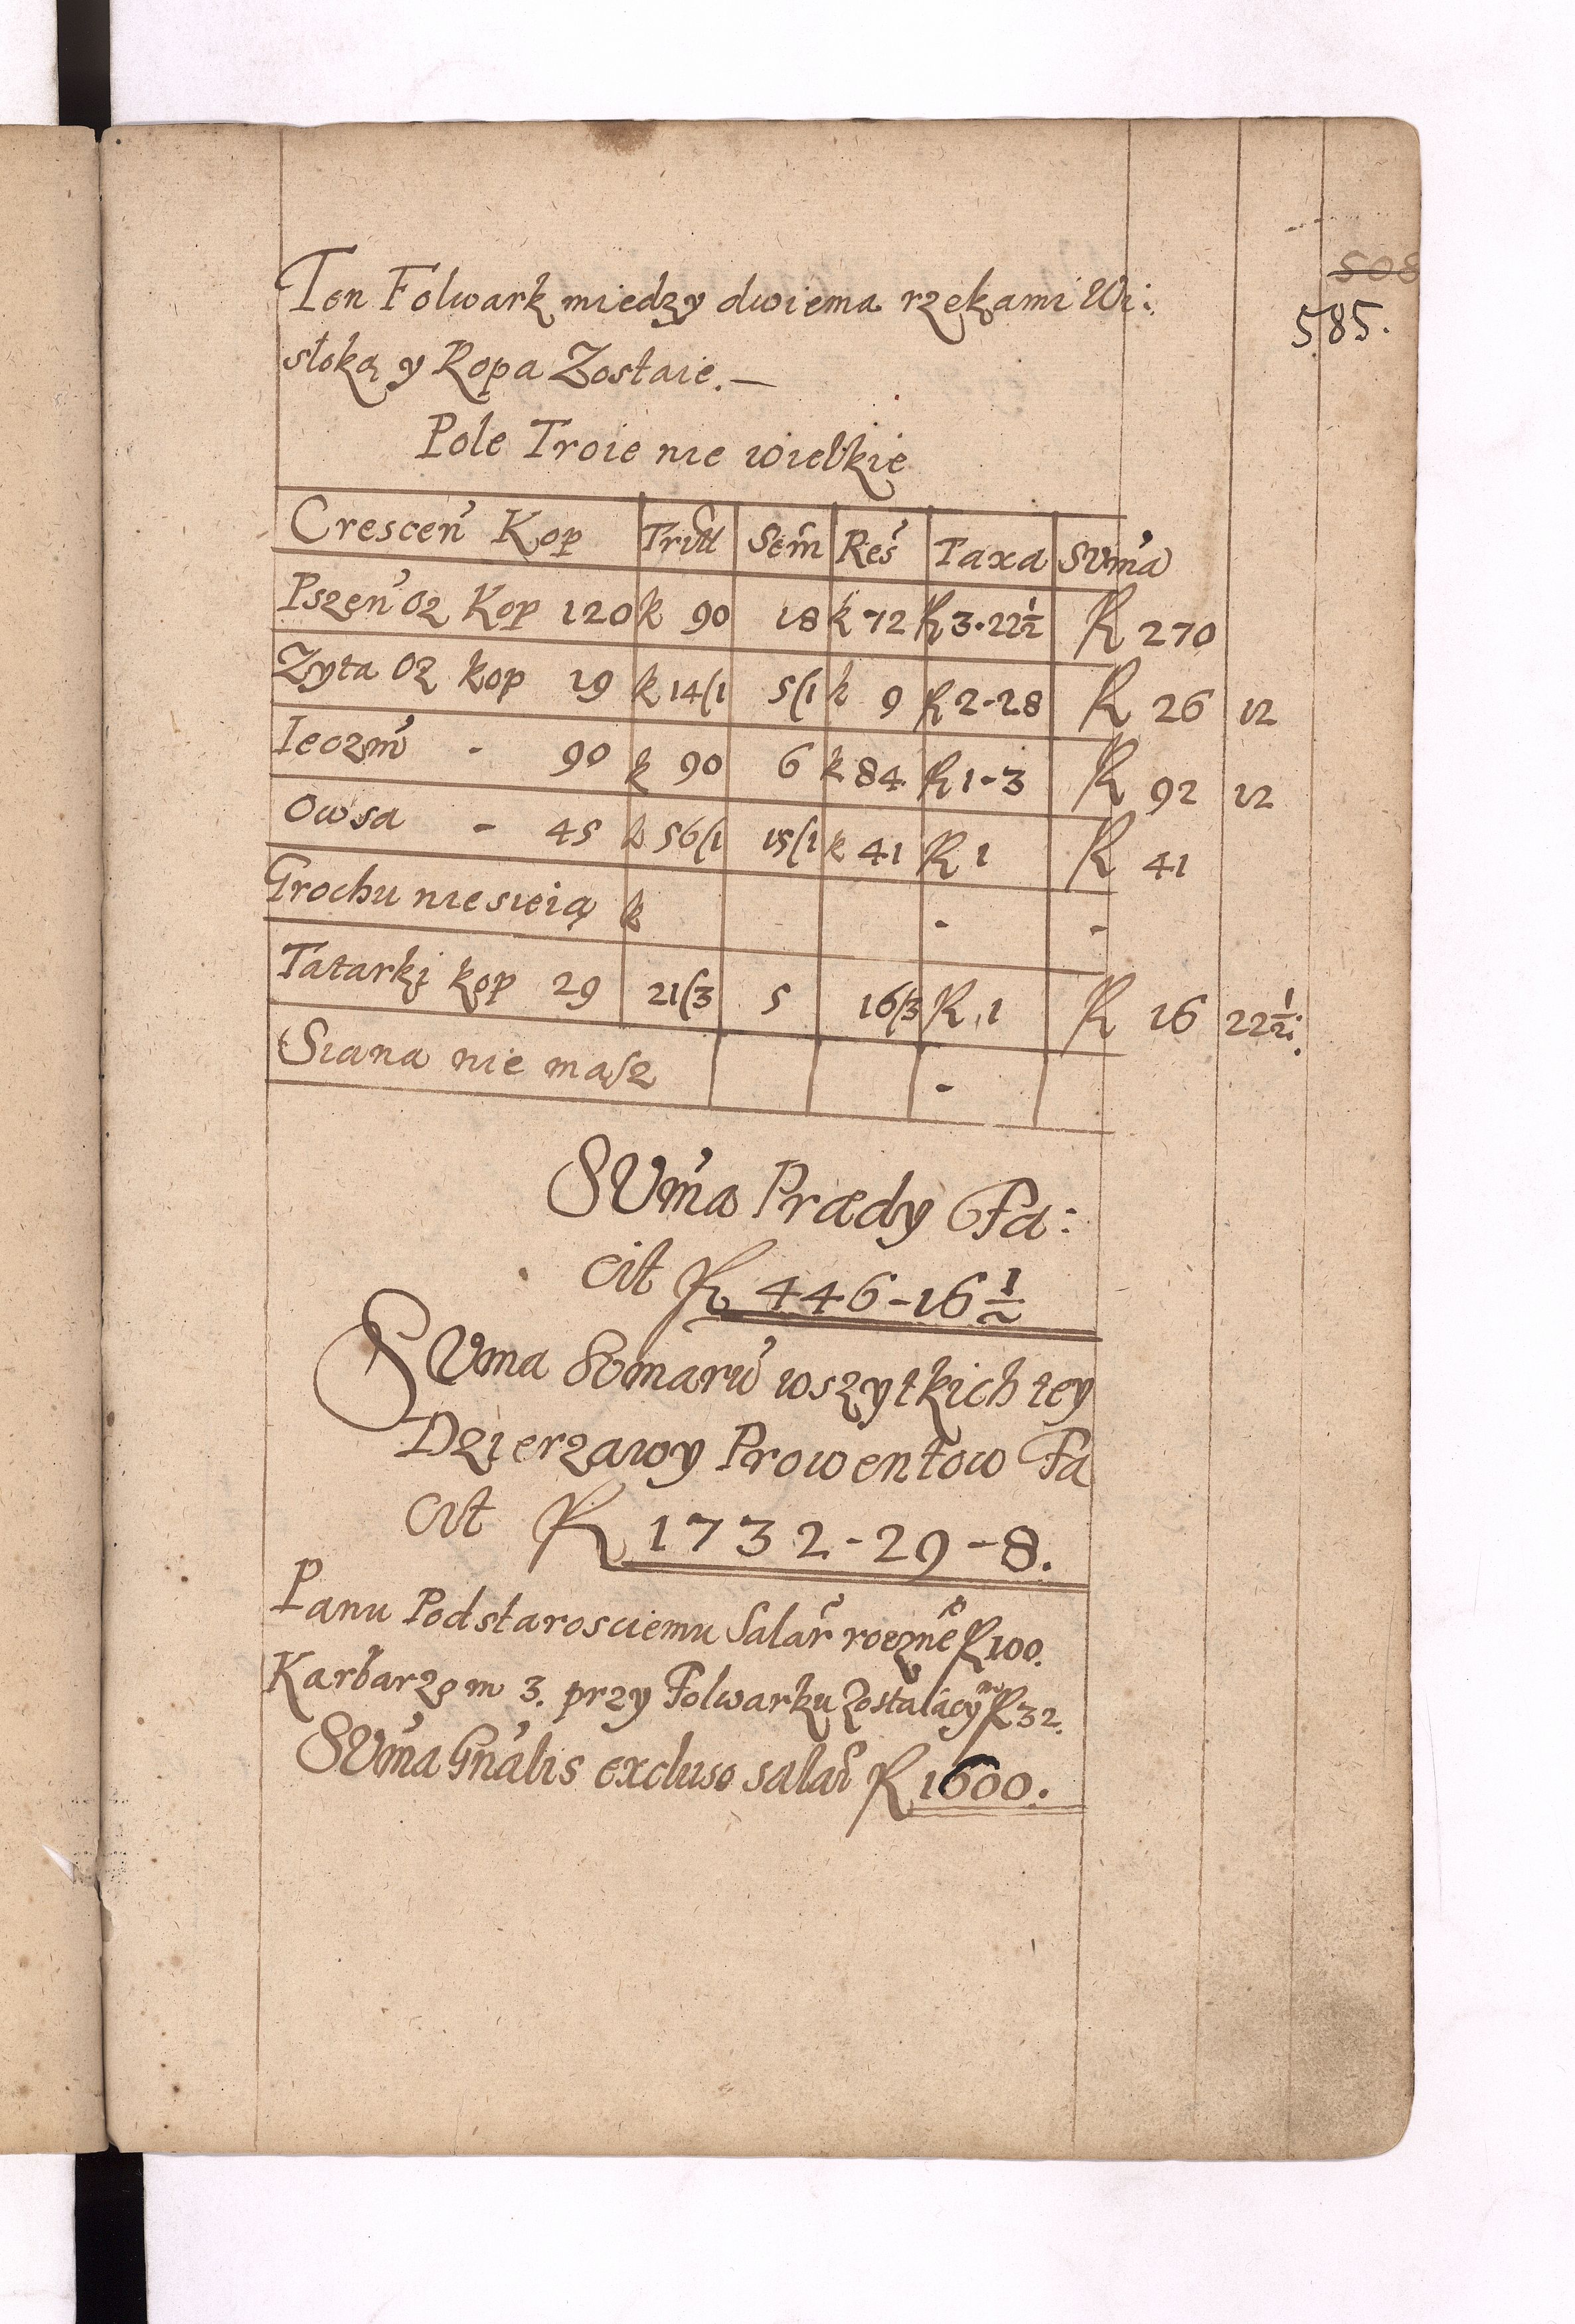 508
585.
Ten Folwark miedzy dwiema rzekami Wi:
słoką y Ropa Zostaie. —
Pole Troie nie wielkie
Crescen̓ Kop Tritt Sem̃ Res̓ Taxa Sum̓a
Pszen̓ Oz Kop 120 k 90 18 k 72 R 3·22½ R 270
Zyta Oz kop 19 k 14/1 5/1 k 9 R 2-28 R 26 12
Ieczm̓ - 90 k 90 6 k 84 R 1-3 R 92 12
Owsa - 45 k 56/1 15/1 k 41 R 1 R 41
Grochu nie sieią k - -
Tatarki kop 29 21/3 5 16/3 R 1 R 16 22½
Siana nie masz -
SVm̓a Prædy Fa:
cit R 446-16½
SVma Somaru̓ wszytkich tey
Dzierzawy Prowentow Fa
cit R 1732-29-8.
Panu Podstarosciemu Salar̃ rocznẽ R 100.
Karbarzom 3. przy Folwarku Zostaiącym R 32.
SVm̓a Gn̓alis excluso salar̃ R 1600.